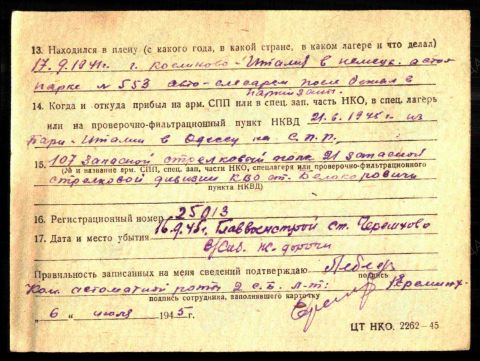 13. Находился в плену (с какого года, в какой стране, в каком лагере и что делал)
17.9.1941г. г. Италия в немецк. авто-
парке № 553 авто-слесарем после бежал в
партизаны.
14. Когда и откуда прибыл на арм. СПП или в спец. зап. часть НКО, в спец. лагерь
или на проверочно-фильтрационный пункт НКВД 21.6.1945г из
Бари-Италии в Одессу на С.П.П.
15. 107 запасной стрелковый полк 21 запасной
(№ и название арм. СПП, спец. зап. части НКО, спецлагеря или проверочно-фильтрационного
стрелковой дивизии КВО ст. Белокоровичи
пункта НКВД)
16. Регистрационный номер 25013
17. Дата и место убытия 16.9.45г. Главвоенстрой ст. Черемхово
В/Сиб. ж. дороги
Правильность записанных на меня сведений подтверждаю
подпись
Ком. автоматной роты 2 с.б. л-т:
подпись сотрудника, заполнявшего карточку
„ 6 “ июля 1945г.
ЦТ НКО. 2262—45